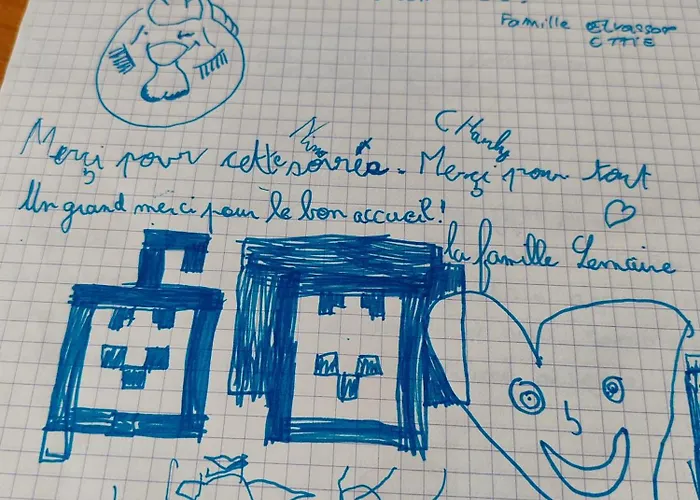 Famille
ETTIE
Nino
CHarly
Merçi pour cette soirée. Merçi pour tout
Un grand merci pour le bon accueil!
la famille Lemaire